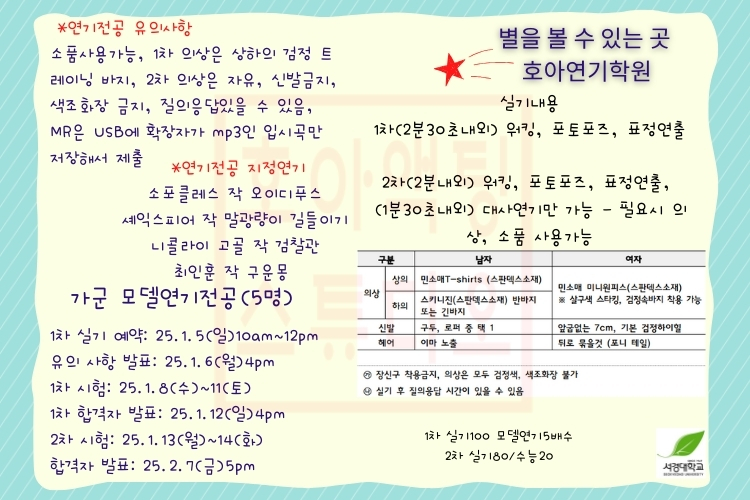 *연기전공 유의사항
소품사용가능, 1차 의상은 상하의 검정 트
레이닝 바지, 2차 의상은 자유, 신발금지,
색조화장 금지, 질의응답있을 수 있음,
MR은 USB에 확장자가 mp3인 입시곡만
저장해서 제출
*연기전공 지정연기
소포클레스 작 오이디푸스
셰익스피어 작 말괄량이 길들이기
니콜라이 고골 작 검찰관
최인훈 작 구운몽
가군 모델연기전공(5명)
1차 실기 예약: 25.1.5(일)10am~12pm
유의 사항 발표: 25.1.6(월)4pm
1차 시험: 25.1.8(수)~11(토)
1차 합격자 발표: 25.1.12(일)4pm
2차 시험: 25.1.13(월)~14(화)
합격자 발표: 25.2.7(금)5pm
별을 볼 수 있는 곳
호아연기학원
실기내용
1차(2분30초내외) 워킹, 포토포즈, 표정연출
2차(2분내외) 워킹, 포토포즈, 표정연출,
(1분30초내외) 대사연기만 가능 - 필요시 의
상, 소품 사용가능
구분 남자 여자
의상 상의 민소매T-shirts (스판덱스소재) 민소매 미니원피스(스판덱스소재)
※ 살구색 스타킹, 검정속바지 착용 가능
하의 스키니진(스판덱스소재) 반바지
또는 긴바지
신발 구두, 로퍼 중 택 1 앞굽없는 7cm, 기본 검정하이힐
헤어 이마 노출 뒤로 묶을것 (포니 테일)
㉮ 장신구 착용금지, 의상은 모두 검정색, 색조화장 불가
㉯ 실기 후 질의응답 시간이 있을 수 있음
1차 실기100 모델연기5배수
2차 실기80/수능20
서경대학교
호아액팅
스튜디오